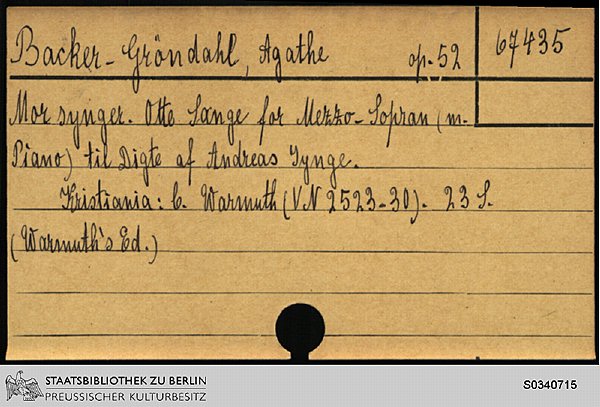 Backer-Gröndahl, Agathe op. 52
67435
Mor synger. Otte Sange for Mezzo-Sopran (m.
Piano) til Digte af Andreas Jynge.
Kristiania: C. Warmuth (VN 2523-30). 23 S.
(Warmuth's Ed.)
STAATSBIBLIOTHEK ZU BERLIN
PREUSSISCHER KULTURBESITZ
S0340715